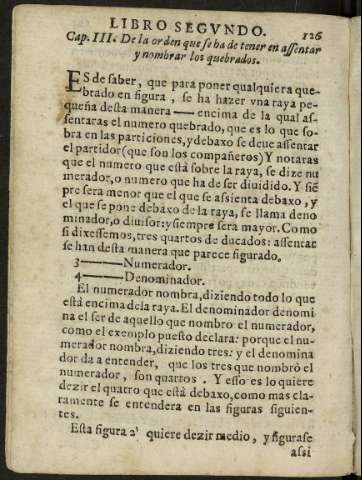 LIBRO SEGVNDO.
126
Cap. III. De la orden que se ha de tener en assentar
y nombrar los quebrados.
ES de saber, que para poner qualquiera que-
brado en figura, se ha hazer vna raya pe-
queña desta manera — encima de la qual as-
sentaras el numero quebrado, que es lo que so-
bra en las particiones, y debaxo se deue assentar
el partidor (que son los compañeros) Y notaras
que el numero que está sobre la raya, se dize nu
merador, o numero que ha de ser diuidido. Y siẽ
pre sera menor que el que se assienta debaxo, y
el que se pone debaxo de la raya, se llama deno
minador, o diuisor: y siempre sera mayor. Como
si dixessemos, tres quartos de ducados: assentac
se han desta manera que parece figurado.
3——Numerador.
4——Denominador.
El numerador nombra, diziendo todo lo que
está encima de la raya. El denominador denomi
na el ser de aquello que nombro el numerador,
como el exemplo puesto declara: porque el nu-
merador nombra, diziendo tres: y el denomina
dor da a entender, que los tres que nombrò el
numerador, son quartos. Y esso es lo quiere
dezir el quatro que està debaxo, como mas cla-
ramente se entendera en las figuras siguien-
tes.
Esta figura 2' quiere dezir medio, y figurase
assi